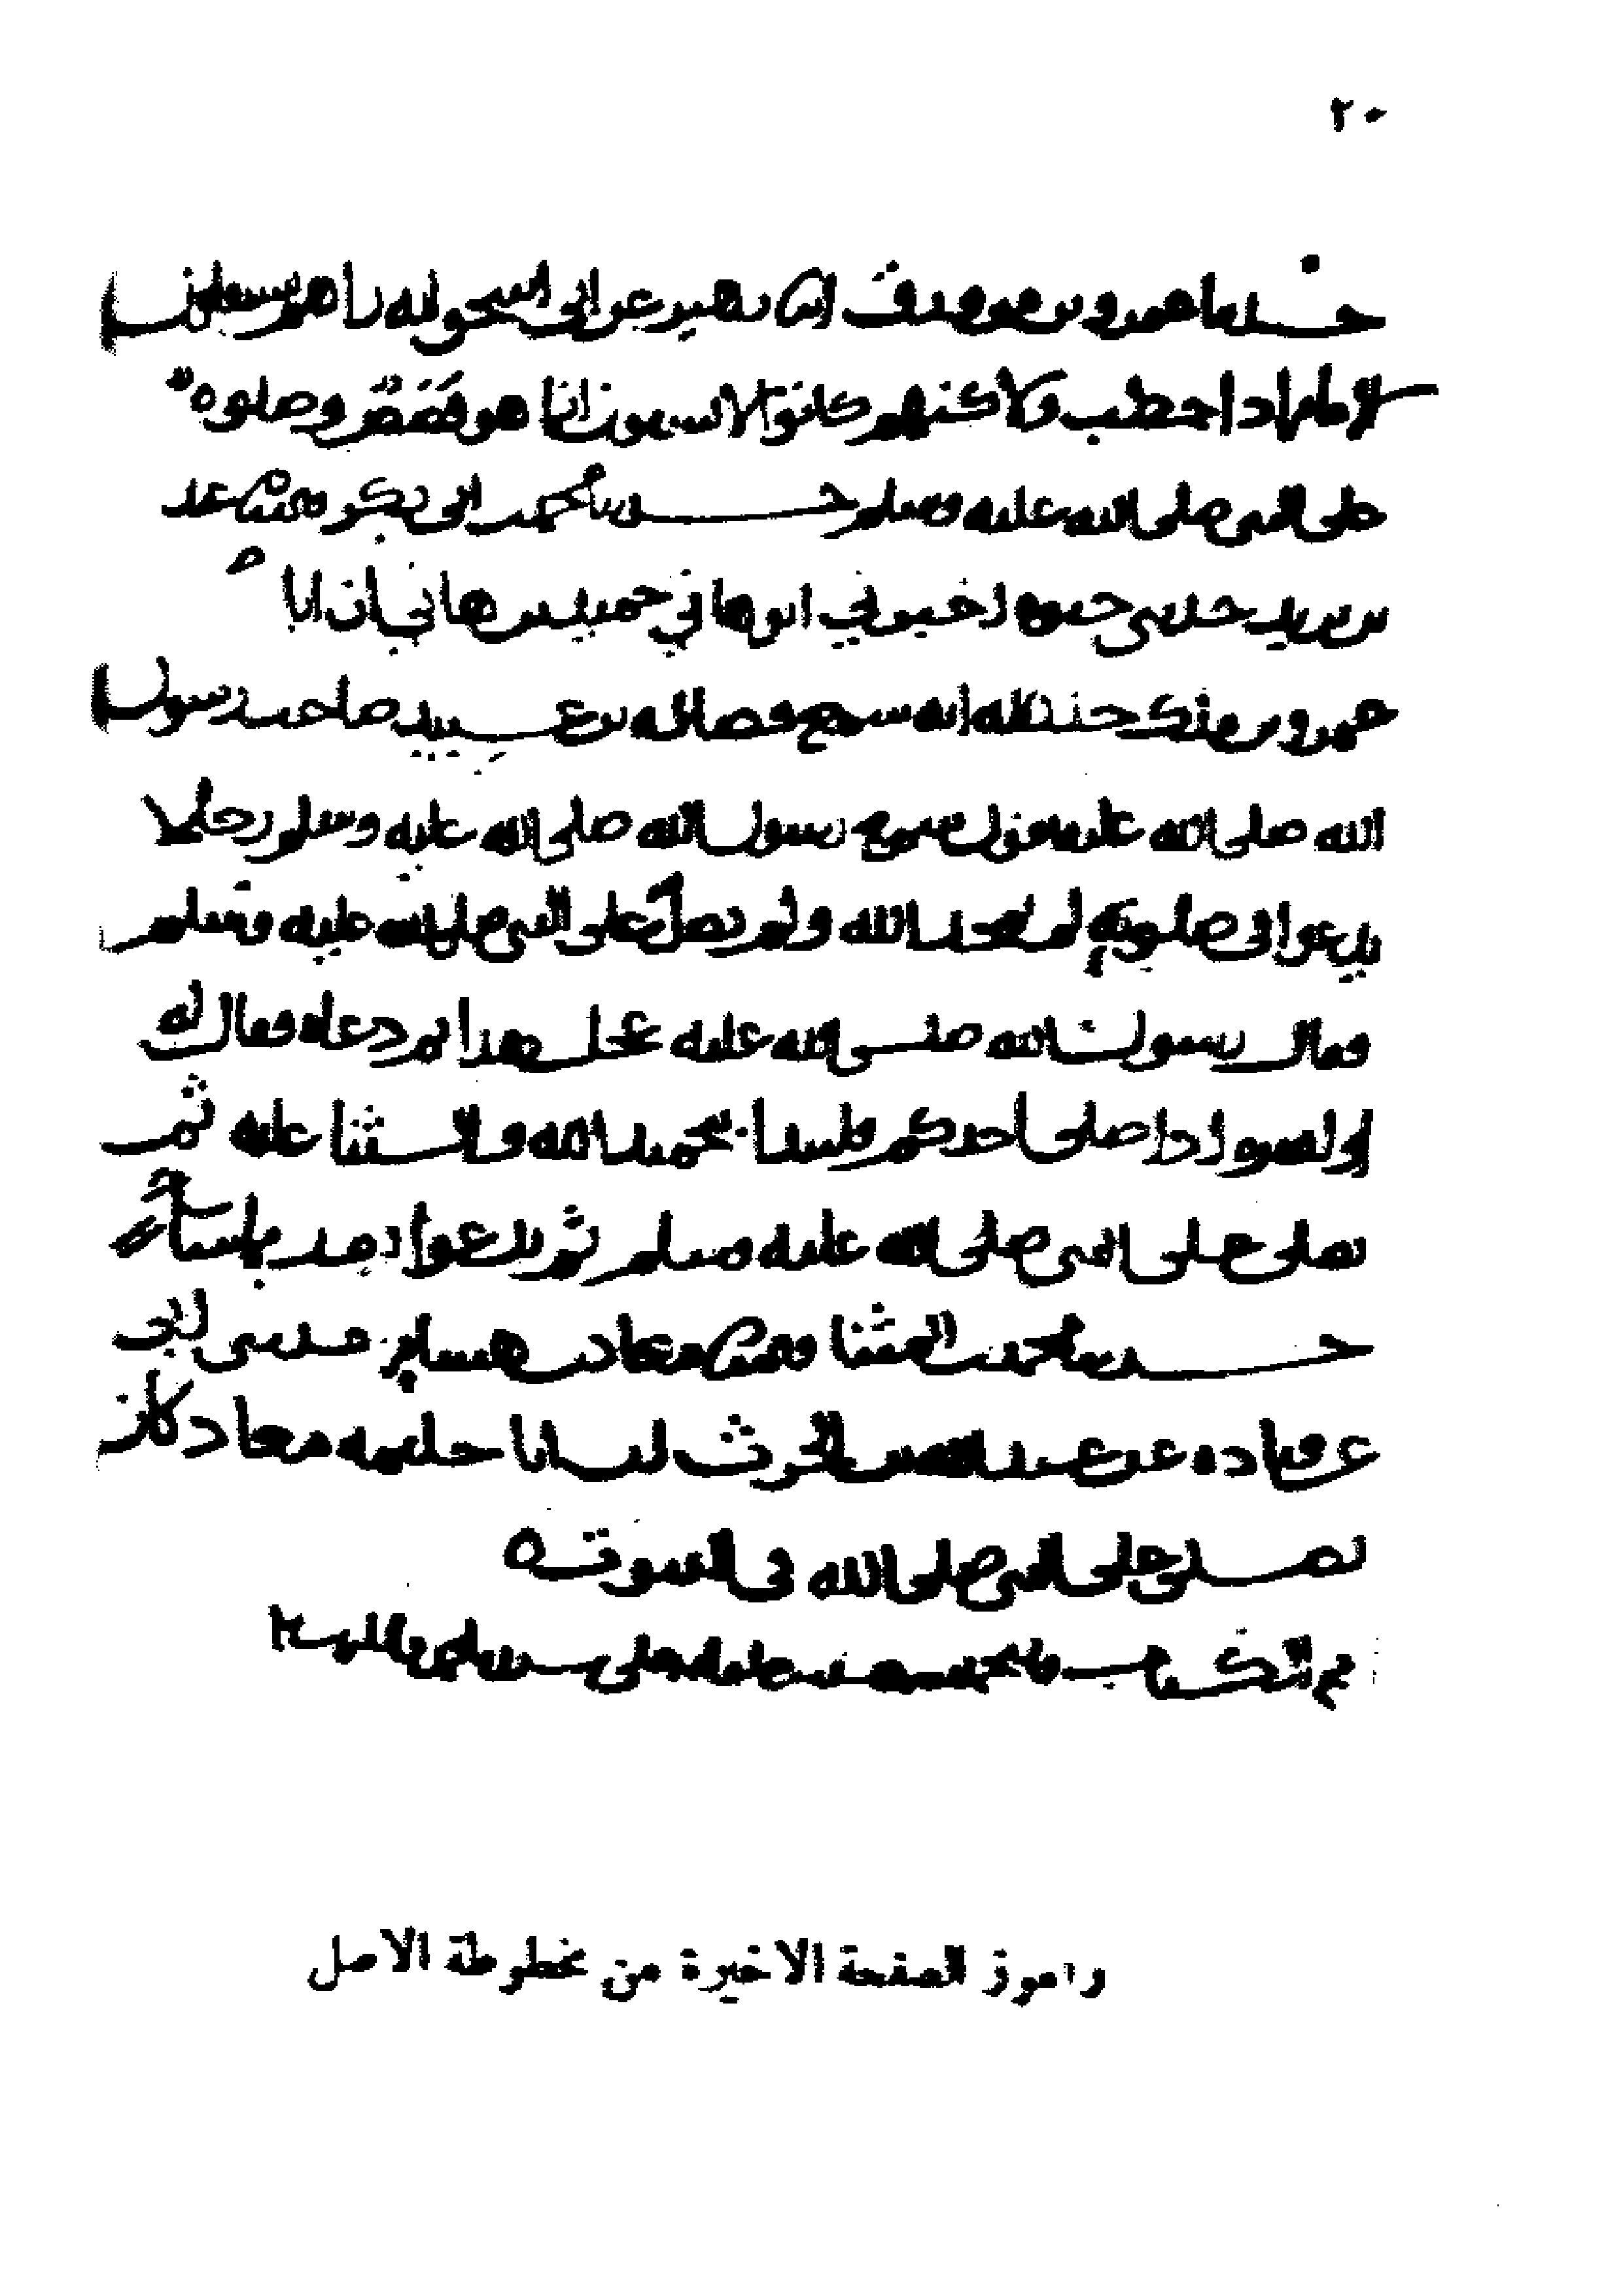 ٢٠
حدثنا عمرو بن مرزوق انا زهير عن ابي اسحق انه راهم يستقبلون
الامام اذا خطب ولاكنهم كانوا لا يسعون انما هو قصص وصلوه
على النبي صلى الله عليه وسلم حدثنا محمد بن ابي بكر قال ثنا عبد
بن يزيد حدثني حيوه اخبرني ابو هاني حميد بن هاني ان ابا
عمرو بن ملك حدثه انه سمع فضاله بن عبيد صاحب رسول
الله صلى الله عليه يقول سمع رسول الله صلى الله عليه وسلم رجلا
يدعوا في صلوته لم يمجد الله ولم يصل على النبي صلى الله عليه وسلم
فقال رسول الله صلى الله عليه عجل هذا ثم دعاه فقال له
او لغيره اذا صلى احدكم فليبدا بتحميد الله والثنا عليه ثم
يصلي على النبي صلى الله عليه وسلم ثم يدعوا بعد بما شا
حدثنا محمد بن المثنا قال ثنا معاذ بن هشام حدثني ابي
عن قتاده عن عبد الله بن الحرث ان ابا حليمه معاذ كان
يصلي على النبي صلى الله في القنوت ه
تم الكتاب والحمد لله
راموز الصفحة الاخيرة من مخطوطة الاصل